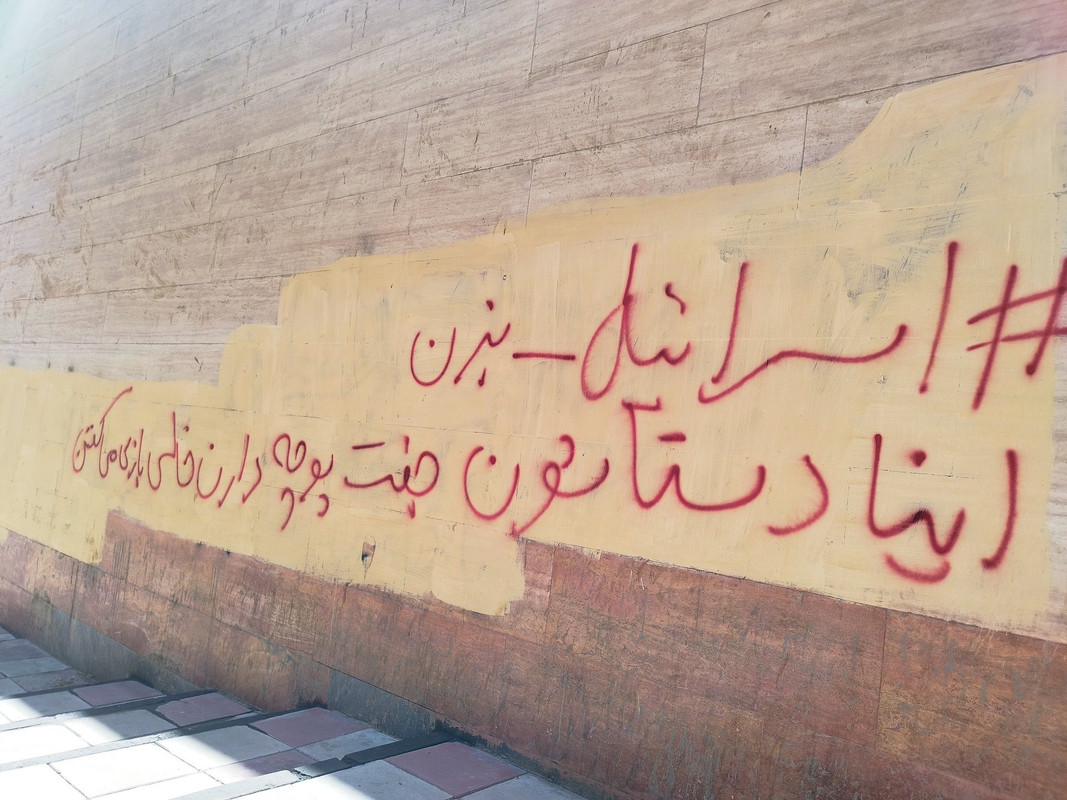 #اسرائیل_بزن
اینا دستاشون جفت پوچه دارن خالی بازی میکنن